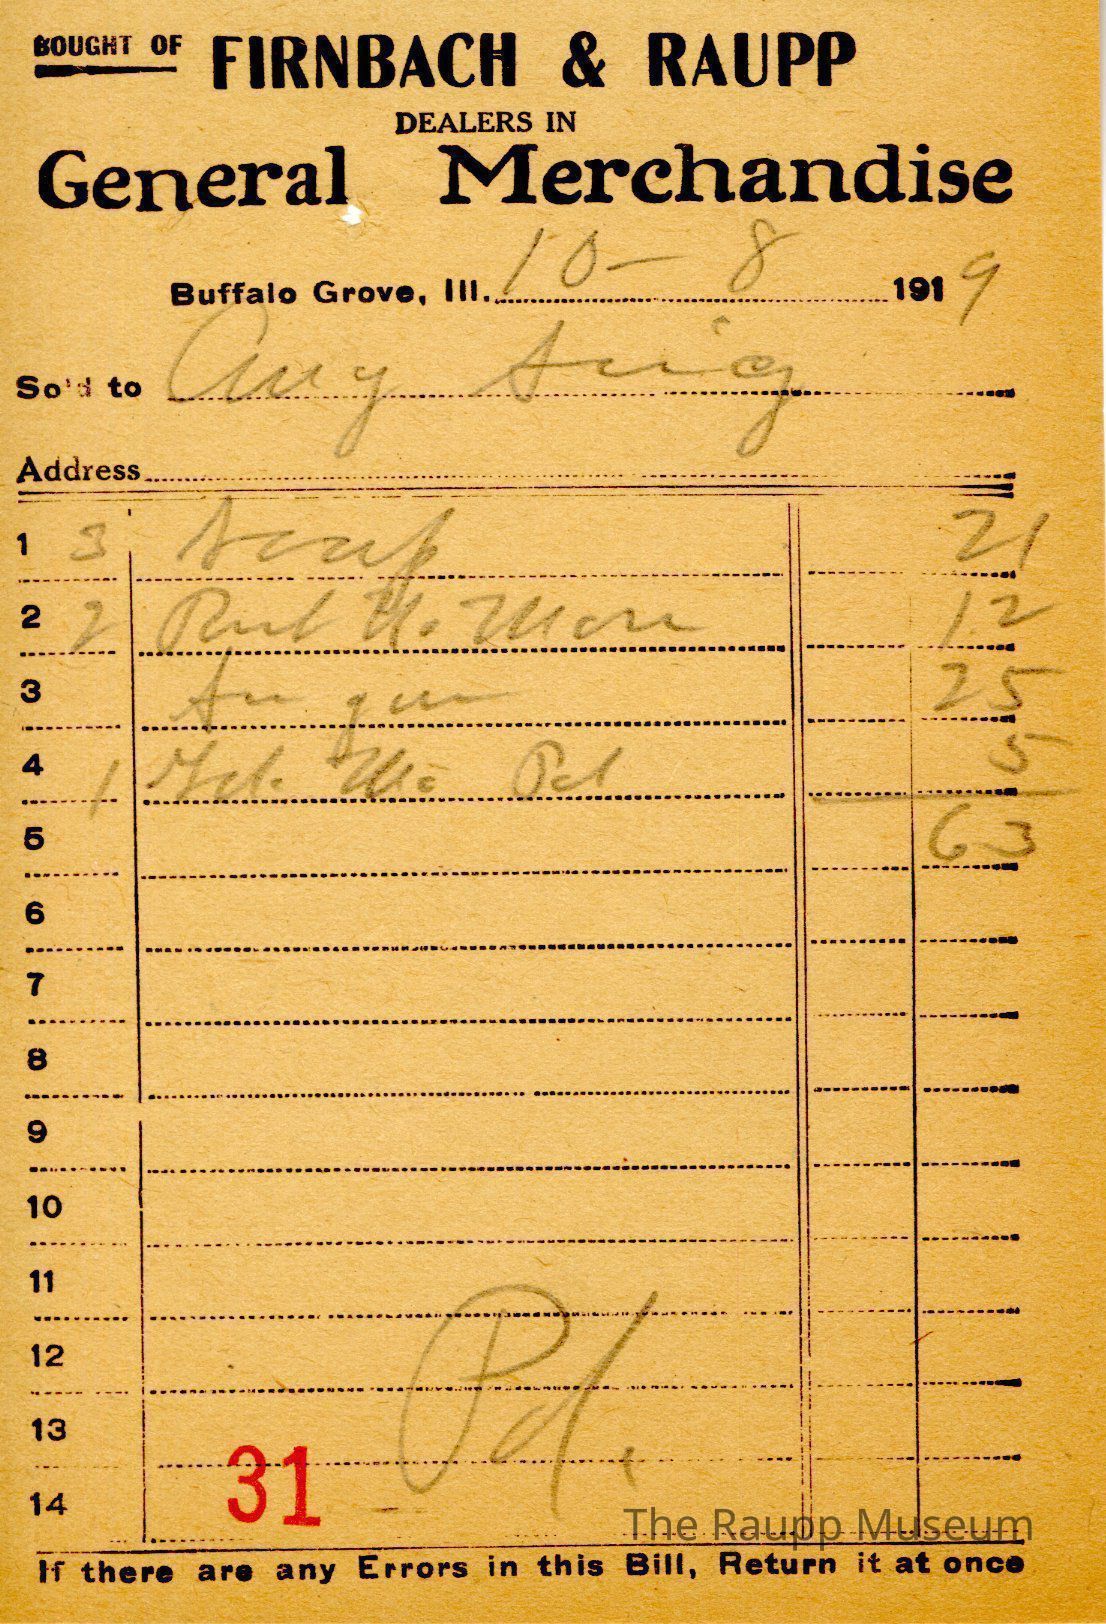 BOUGHT OF FIRNBACH & RAUPP
DEALERS IN
General Merchandise
Buffalo Grove, Ill. 10-8 1919
Sold to Aug
Address
1 3 Soap 21
2 2 Rub No More 12
3 25
4 1 5
5 63
6
7
8
9
10
11
12
13
14
Pd.
31
The Raupp Museum
If there are any Errors in this Bill, Return it at once